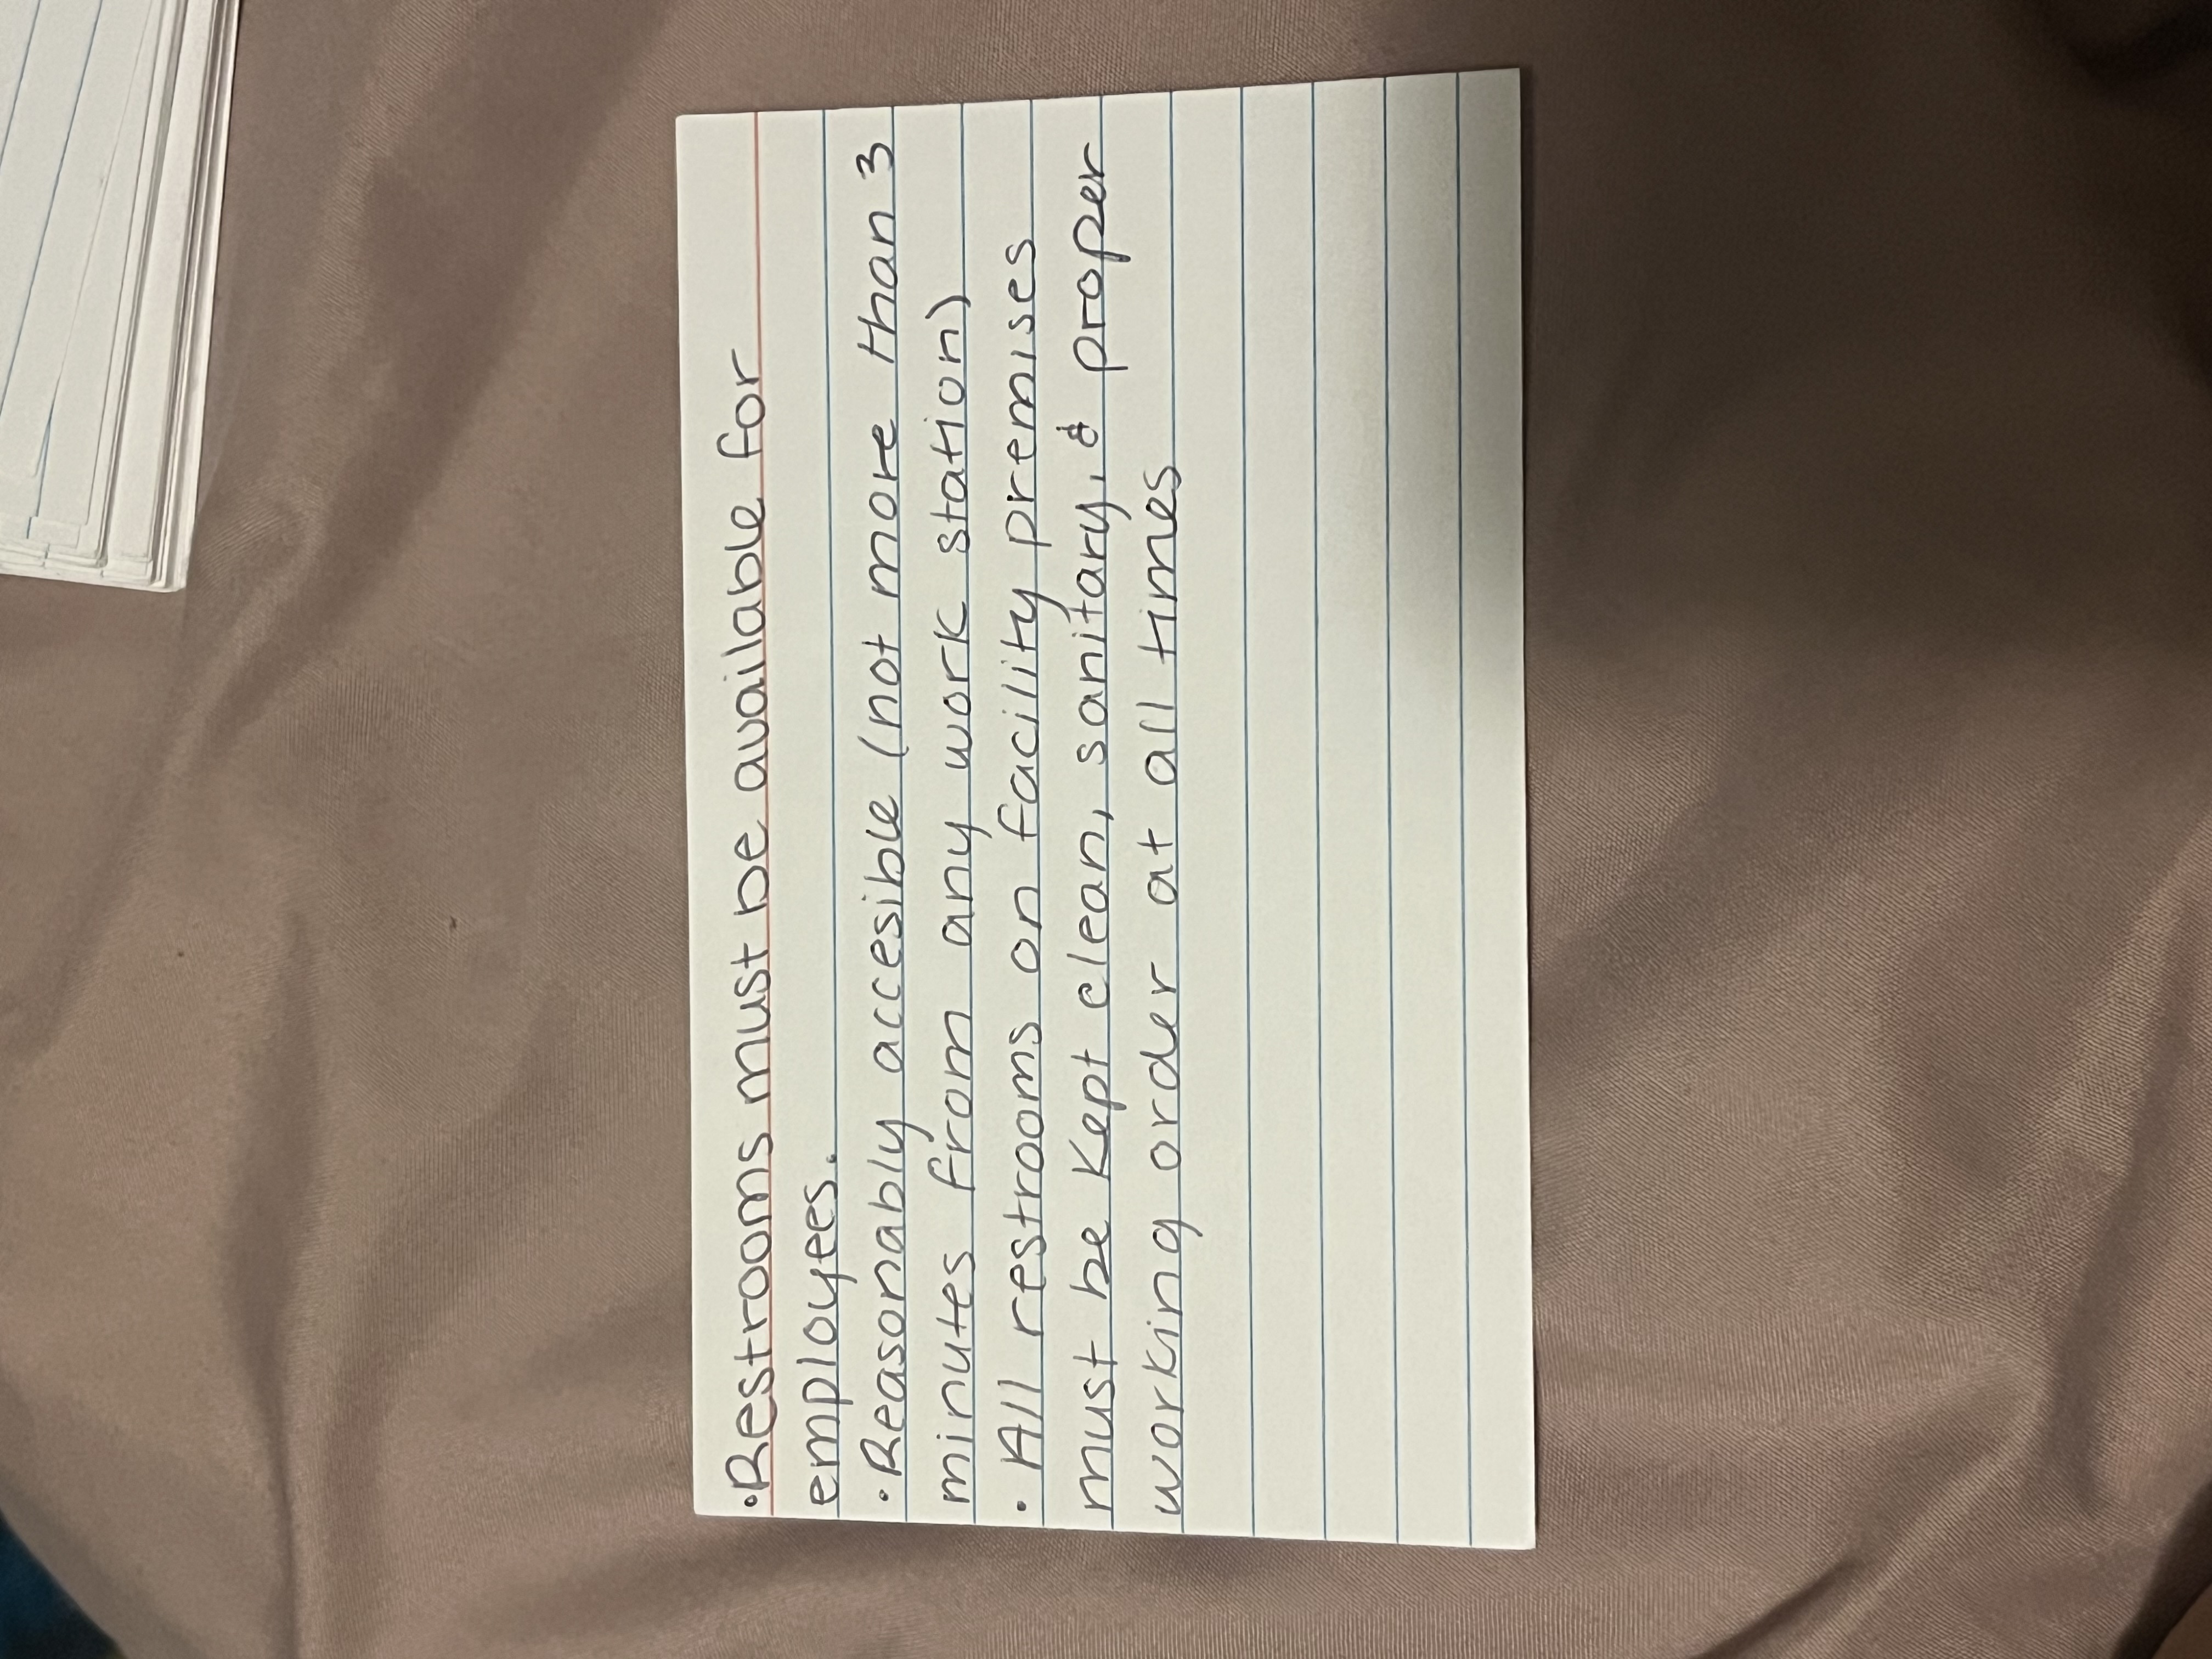 •Restrooms must be available for
employees.
• Reasonably accesible (not more than 3
minutes from any work station)
• All restrooms on facility premises
must be kept clean, sanitary, & proper
working order at all times